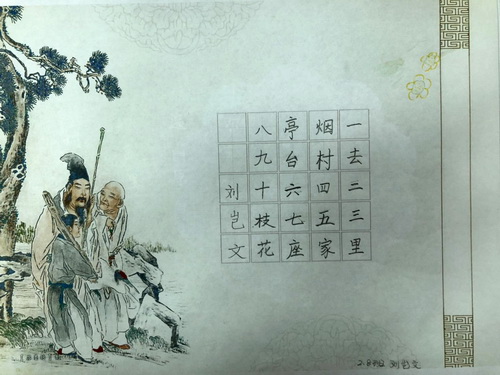 一去二三里
烟村四五家
亭台六七座
八九十枝花
刘岂文
2.8班 刘岂文